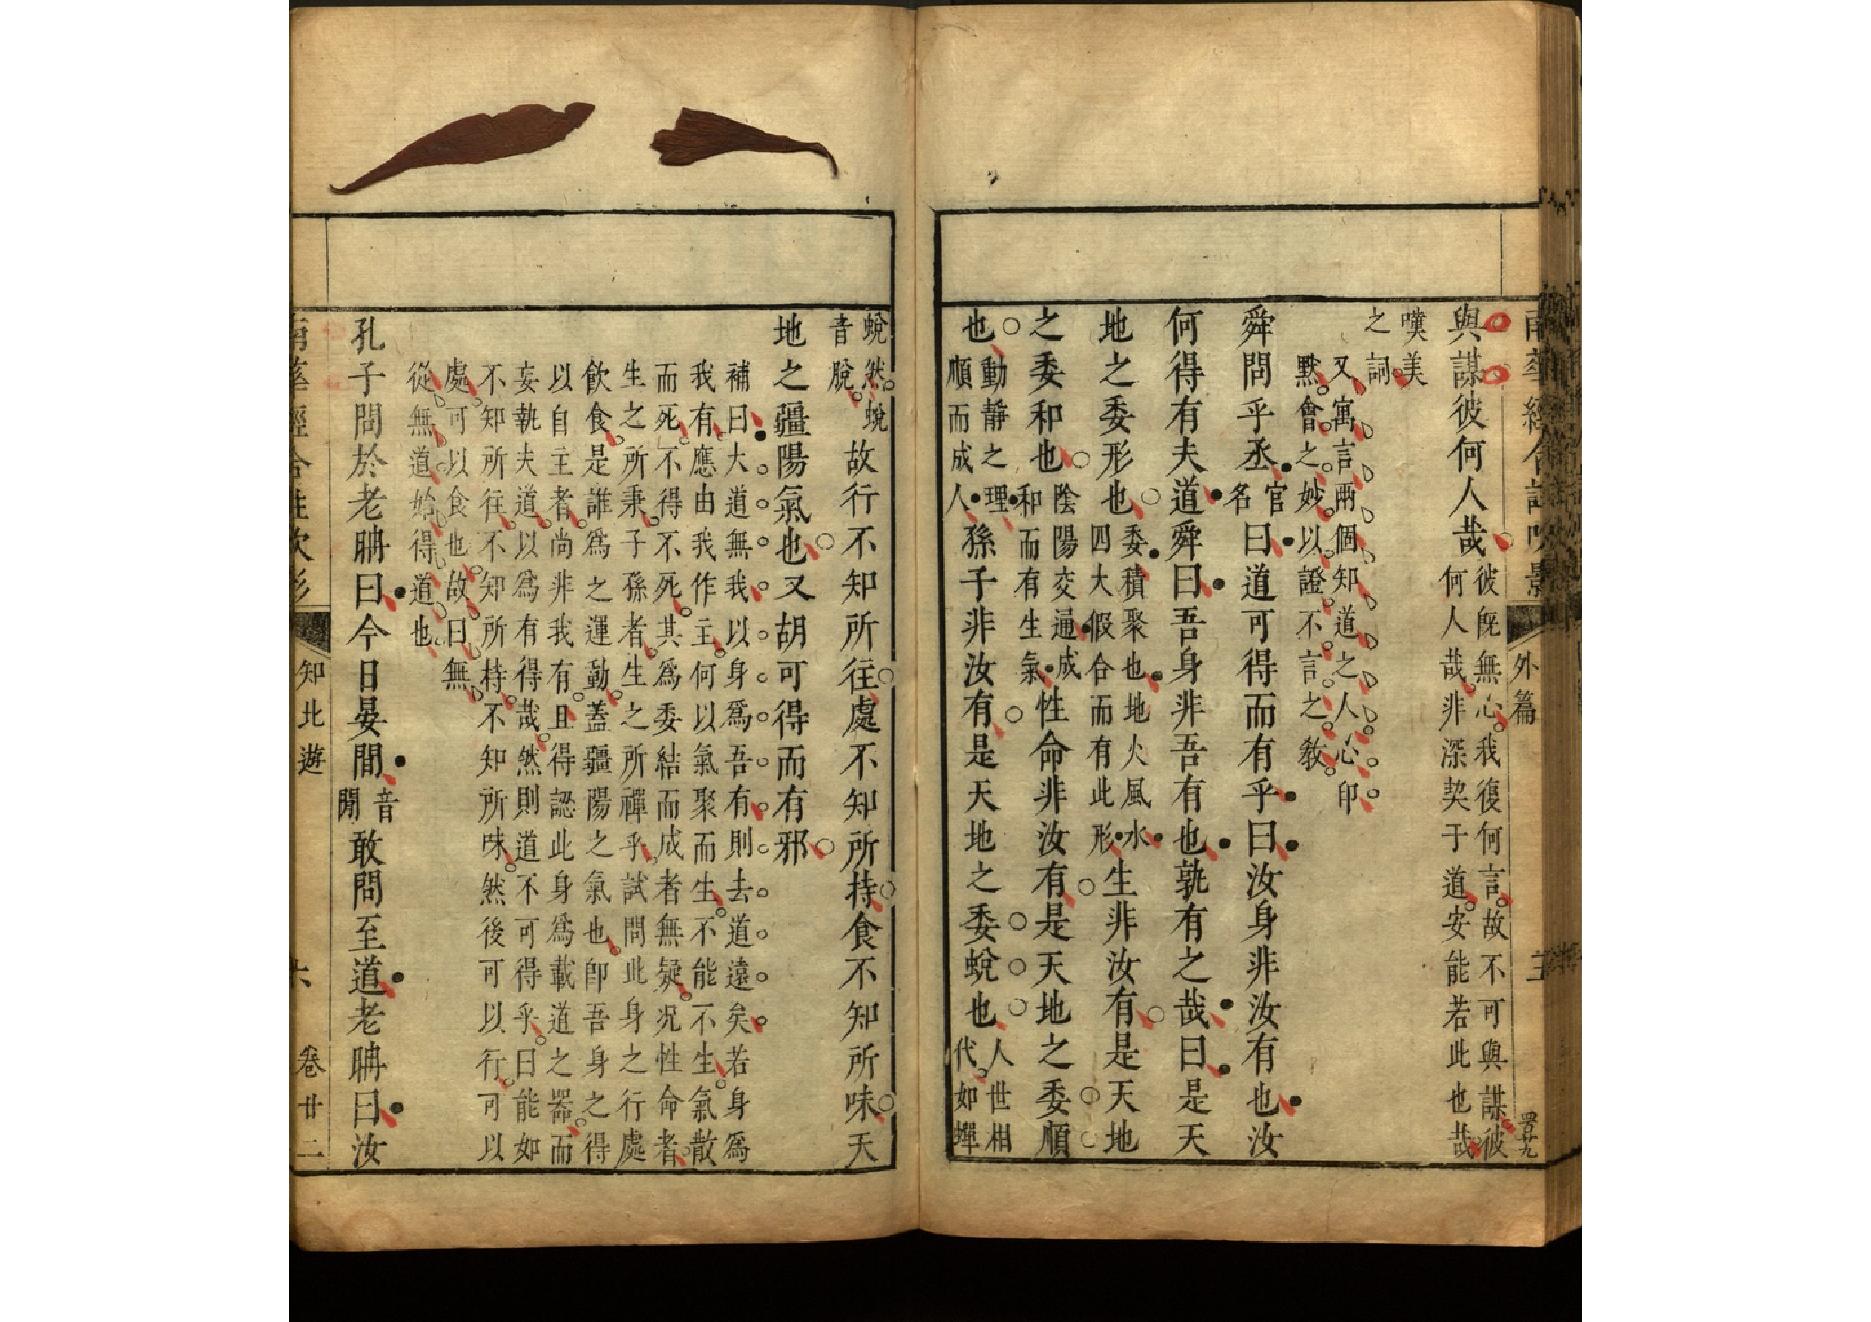 與謀彼何人哉彼旣無心我復何言故不可與謀彼何人哉非深契于道安能若此也哉
嘆美之詞
又寓言兩個知道之人心印
默會之妙以證不言之教
舜問乎丞官名曰道可得而有乎曰汝身非汝有也汝
何得有夫道舜曰吾身非吾有也孰有之哉曰是天
地之委形也委積聚也地火風水四大假合而有此形生非汝有是天地
之委和也陰陽交通成和而有生氣性命非汝有是天地之委順
也動靜之理順而成人孫子非汝有是天地之委蛻也人世相代如蟬
蛻然蛻音脫故行不知所往處不知所持食不知所味天
地之疆陽氣也又胡可得而有邪
補曰大道無我以身爲吾有則去道遠矣若身爲
我有應由我作主何以氣聚而生不能不生氣散
而死不得不死其爲委結而成者無疑况性命者
生之所秉子孫者生之所禪乎試問此身之行處
飲食是誰爲之運動蓋疆陽之氣也卽吾身之得
以自主者尚非我有且得認此身爲載道之器而
妄執夫道以爲有得哉然則道不可得乎曰能如
不知所往不知所持不知所味然後可以行可以
處可以食也故曰無
從無道始得道也
孔子問於老聃曰今日晏間音閒敢問至道老聃曰汝
外篇
知北遊
六
卷廿二